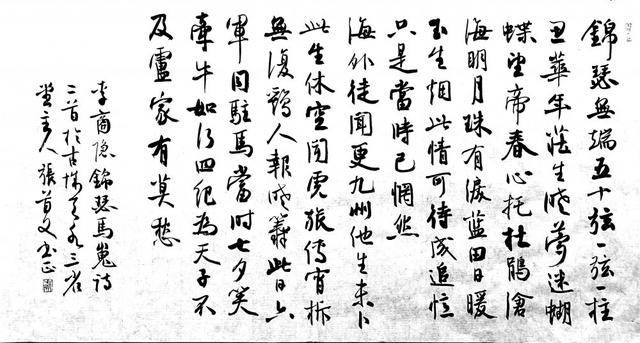 錦瑟無端五十弦一弦一柱
思華年莊生曉夢迷蝴
蝶望帝春心托杜鵑滄
海明月珠有淚藍田日暖
玉生烟此情可待成追憶
只是當時已惘然
海外徒聞更九州他生未卜
此生休空聞虎旅傳宵柝
無復鷄人報曉籌此日六
軍同駐馬當时七夕笑
牽牛如何四紀為天子不
及盧家有莫愁
李商隐錦瑟馬嵬詩
二首於古城天水三省
堂主人張首文书正